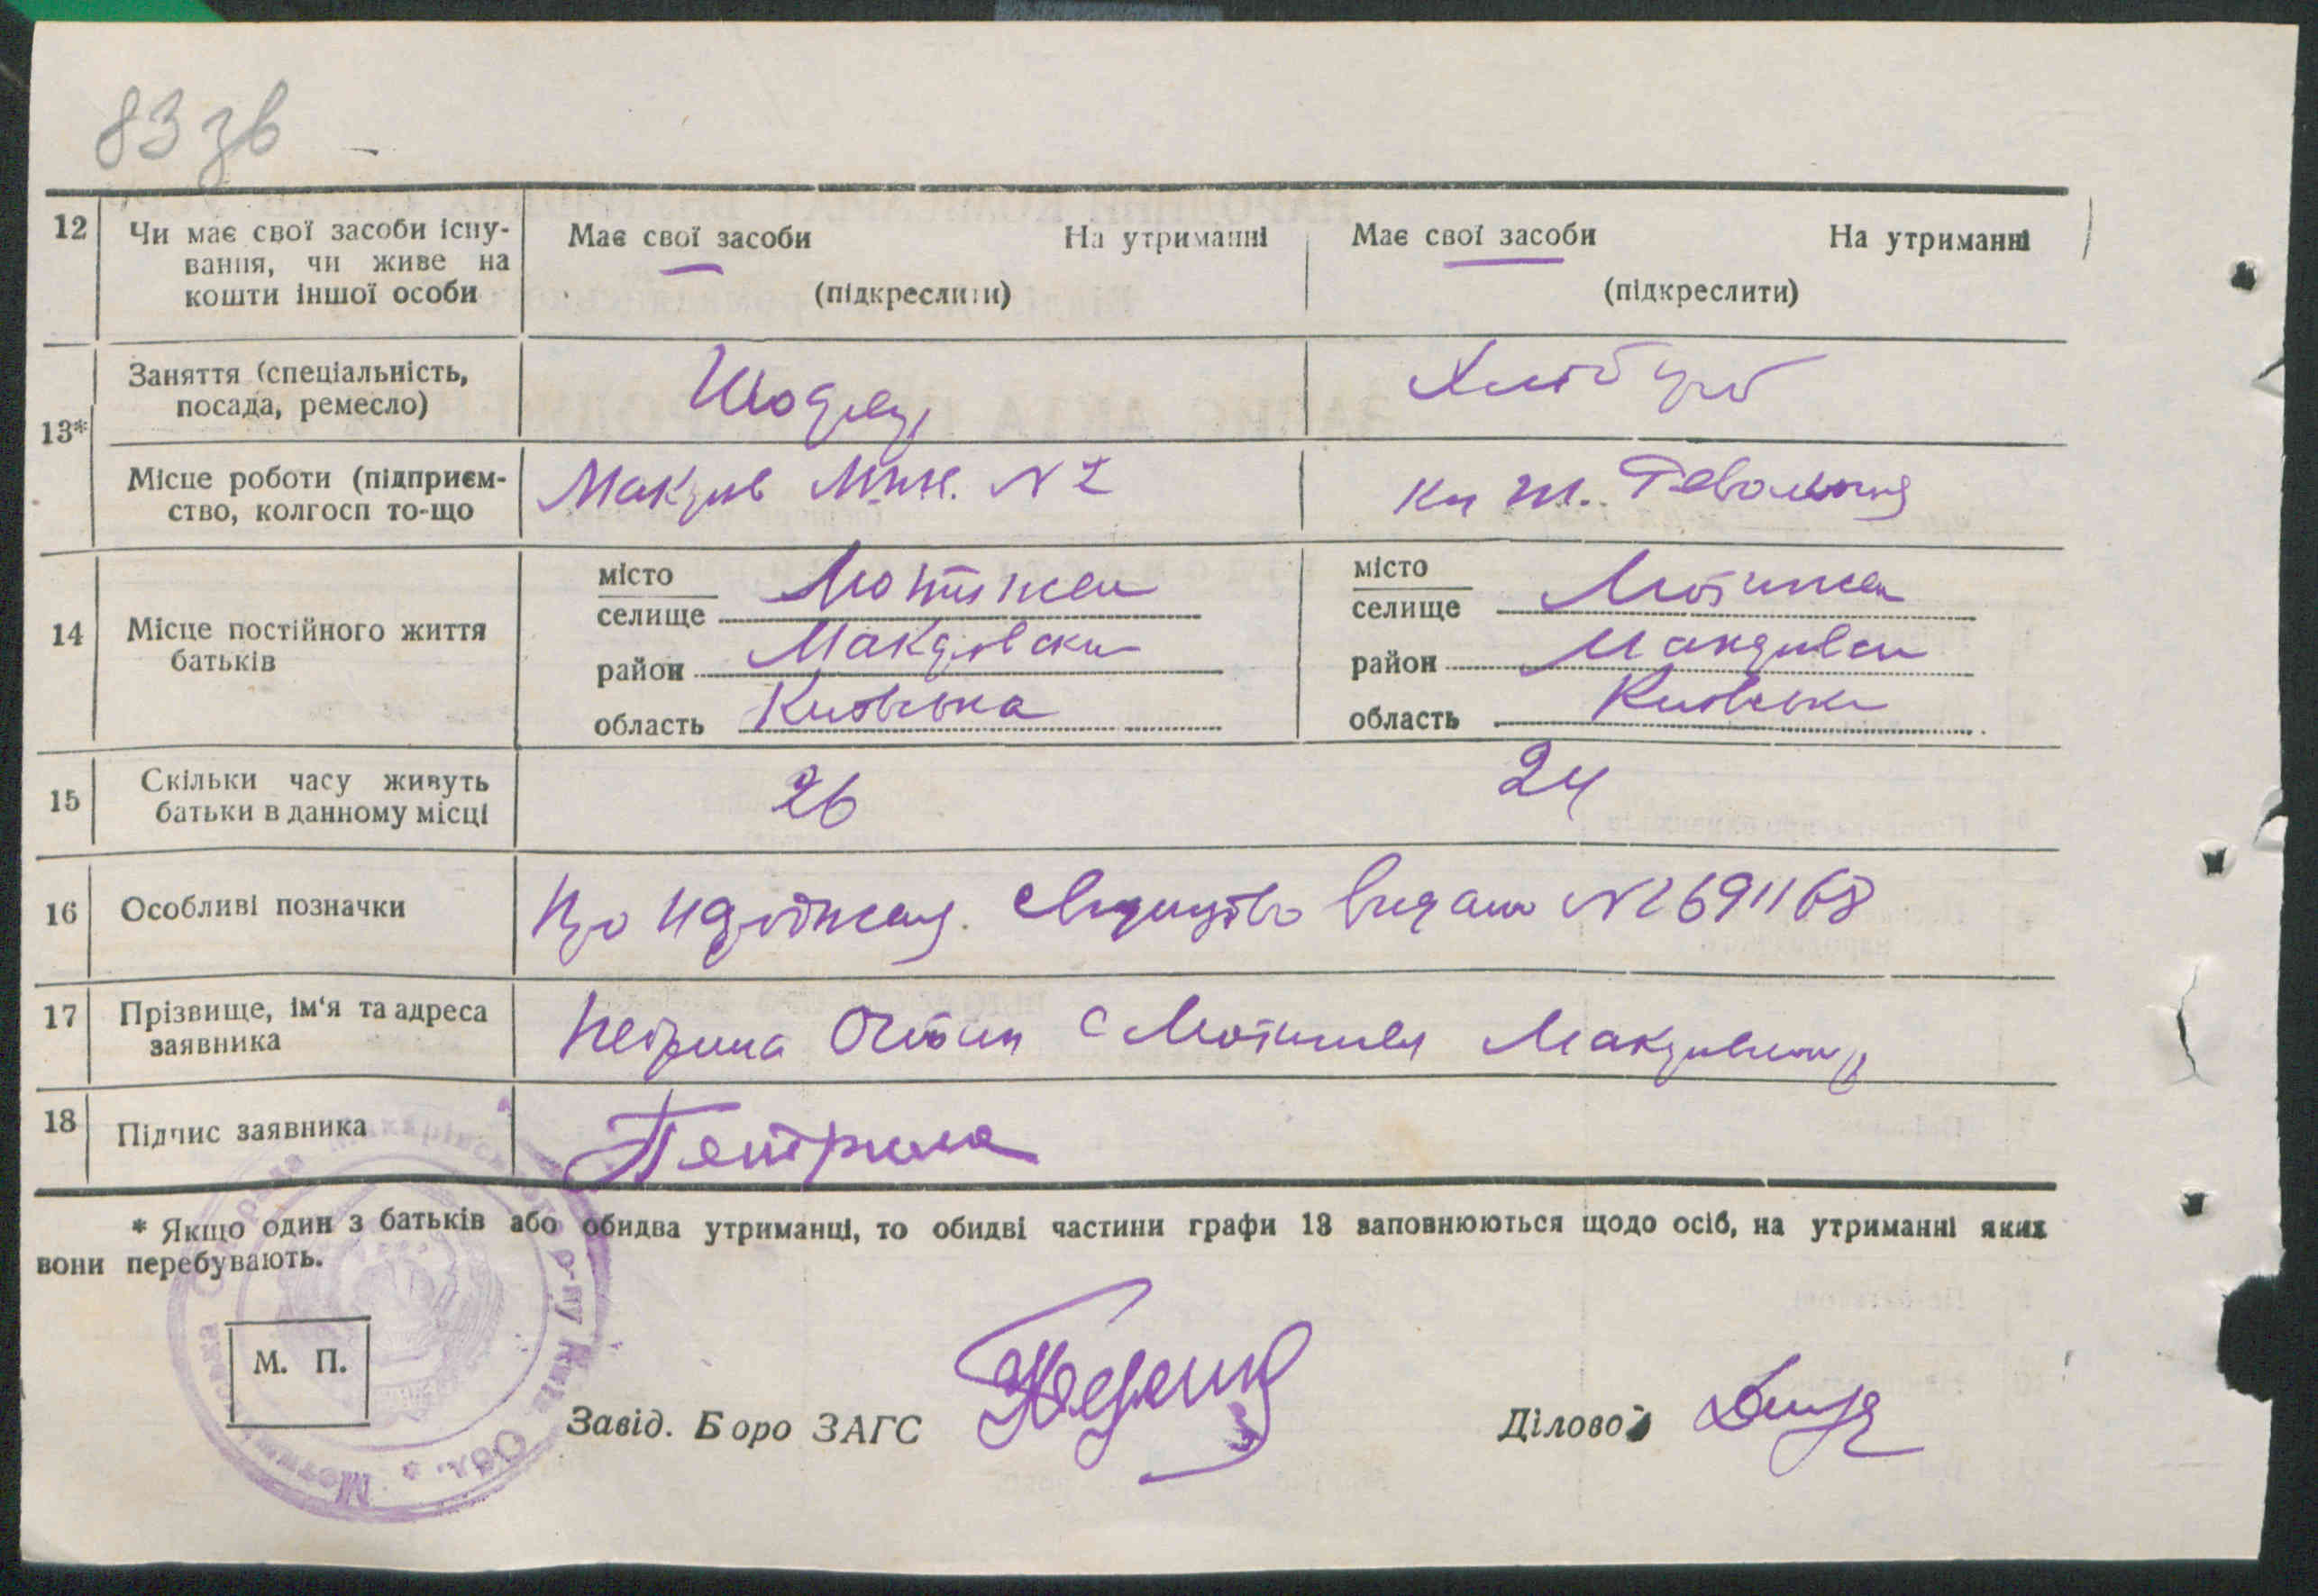 83 зв
12 Чи має свої засоби існу-
вання, чи живе на
кошти іншої особи
Має свої засоби На утриманні
(підкреслити)
Має свої засоби На утриманні
(підкреслити)
13*
Заняття (спеціальність,
посада, ремесло)
Хлібороб
Місце роботи (підприєм-
ство, колгосп то-що
Макарів №
14 Місце постійного життя
батьків
місто
селище Мотижен
район Макарівськ
область Київська
місто
селище Мотижен
район Макарівськ
область Київська
15 Скільки часу живуть
батьки в данному місці
26
24
16 Особливі позначки
Про народжен. свідоцтво видано № 691168
17 Прізвище, ім'я та адреса
заявника
Петрина с Мотижен Макарівськ
18 Підпис заявника
Петрина
* Якщо один з батьків або обидва утриманці, то обидві частини графи 13 заповнюються щодо осіб, на утриманні яких
вони перебувають.
М. П.
Завід. Бюро ЗАГС
Діловод